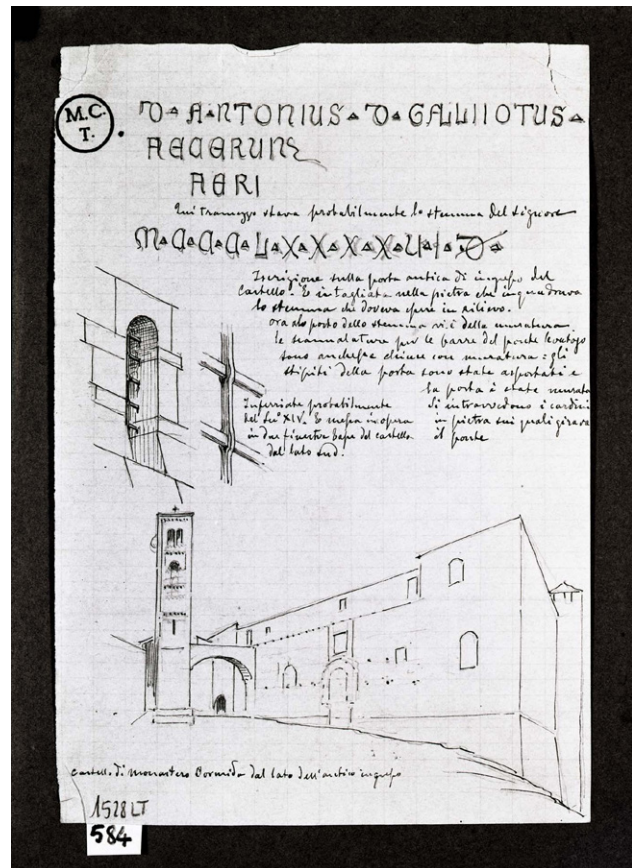 M.C.
T.
D▲A▲NTONIUS▲D▲GALLIIOTUS▲
FECERUNT
FIERI
Qui tramezzo stava probabilmente lo stemma del signore
M▲C▲C▲C▲L▲X▲X▲X▲X▲U▲I▲D▲
Iscrizione sulla porta antica di ingresso del
Castello. È intagliata nella pietra che inquadrava
lo stemma che doveva essere in rilievo.
ora al posto dello stemma vi è della muratura.
le scannalature per le barre del ponte levatojo
sono anch'esse chiuse con muratura: gli
stipiti della porta sono state asportati e
la porta è stata murata
Si intravvedono i cardini
in pietra sui quali girava
il ponte
Inferriate probabilmente
del Sec° XIV. È messa in opera
in due finestre basse del castello
dal lato sud.
Castello di Monastero Bormida dal lato dell'antico ingresso
1528 LT
584